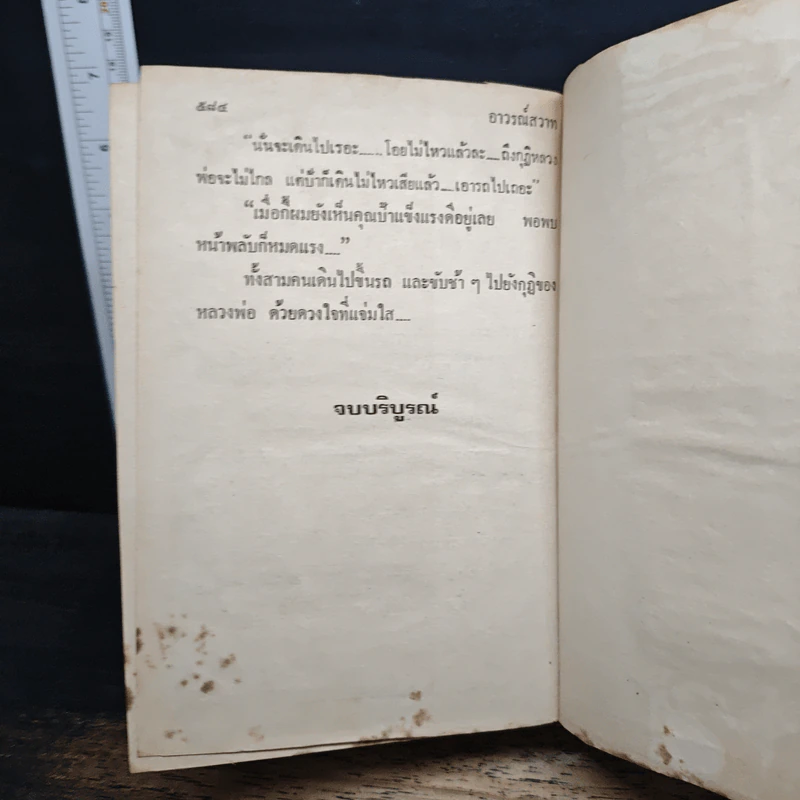 ๕๘๔
อาวรณ์สวาท
“นั่นจะเดินไปเรอะ.....โอยไม่ไหวแล้วละ....ถึงกุฏิหลวง
พ่อจะไม่ไกล แต่ป้าก็เดินไม่ไหวเสียแล้ว....เอารถไปเถอะ”
“เมื่อกี้ผมยังเห็นคุณป้าแข็งแรงดีอยู่เลย พอพบ
หน้าพลับก็หมดแรง....”
ทั้งสามคนเดินไปขึ้นรถ และขับช้า ๆ ไปยังกุฏิของ
หลวงพ่อ ด้วยดวงใจที่แจ่มใส....
จบบริบูรณ์